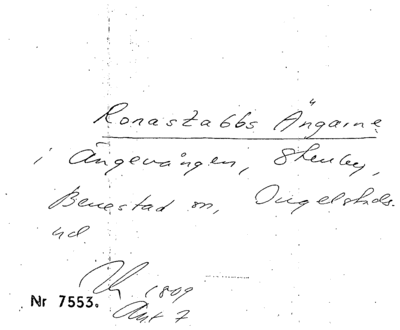 Ronastabbs Ängarne
i Ängavången,
Benestad sn, Ingelstads
hd
1809
Akt 7
Nr 7553.